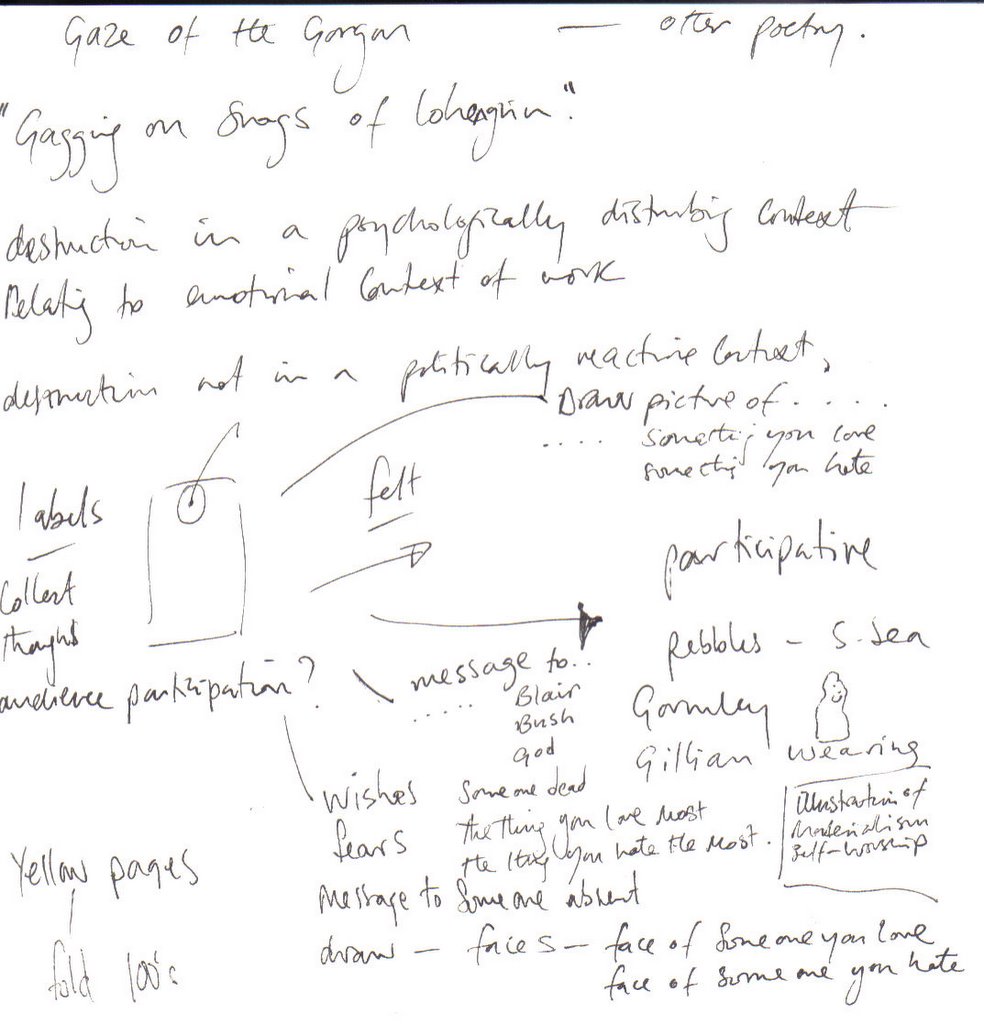 Gaze of the Gorgon — other poetry.
"Gagging on Snags of Lohengrin".
destruction in a psychologically disturbing context
Relating to emotional context of work
destruction not in a politically reactive context,
Draw picture of . . . .
. . . . something you love
something you hate
labels
felt
Collect
thoughts
participative
audience participation?
pebbles - S. Sea
message to..
. . . . .
Blair
Bush
God
Gormley
Gillian Wearing
wishes someone dead
fears the thing you love most
the thing you hate the most.
Illustration of
Materialism
Self-worship
message to someone absent
Yellow pages
fold 100's
draw - faces - face of someone you love
face of someone you hate